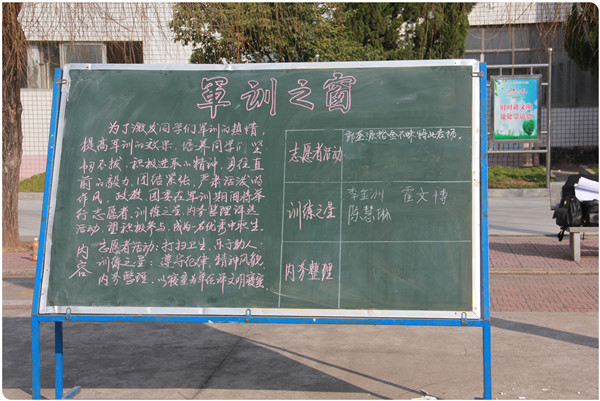 军训之窗
为了激发同学们军训的热情,
提高军训的效果,培养同学们坚
韧不拔、积极进取的精神,勇往直
前的毅力,团结紧张、严肃活泼的
作风,政教、团委在军训期间将举
行志愿者、训练之星、内务整理评选
活动,望积极参与,成为一名优秀中职生。
内容
志愿者活动:打扫卫生,乐于助人;
训练之星:遵守纪律,精神风貌
内务整理:以寝室为单位评文明寝室
志愿者活动
拾金不昧 特此表扬。
训练之星
李金洲 霍文博
陈慧琳
内务整理
时时讲文明
处处学